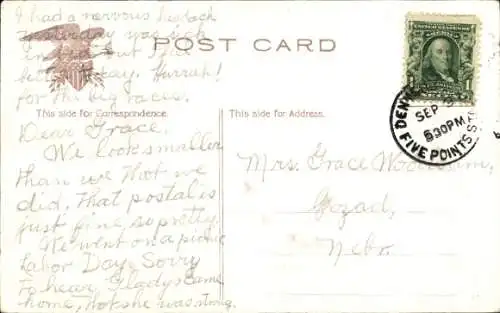 I had a nervous
yesterday was sick
in bed but I feel
better today. Hurrah!
for the big races.
POST CARD
This side for Correspondence.
This side for Address.
Dear Grace.
We look smaller
than we that we
did. That postal is
just fine, so pretty.
We went on a picnic
Labor Day. Sorry
to hear, Gladys came
home, she was strong.
Mrs. Grace
Gozad,
Nebr.
DENV
SEP
530PM
FIVE POINTS STA
1